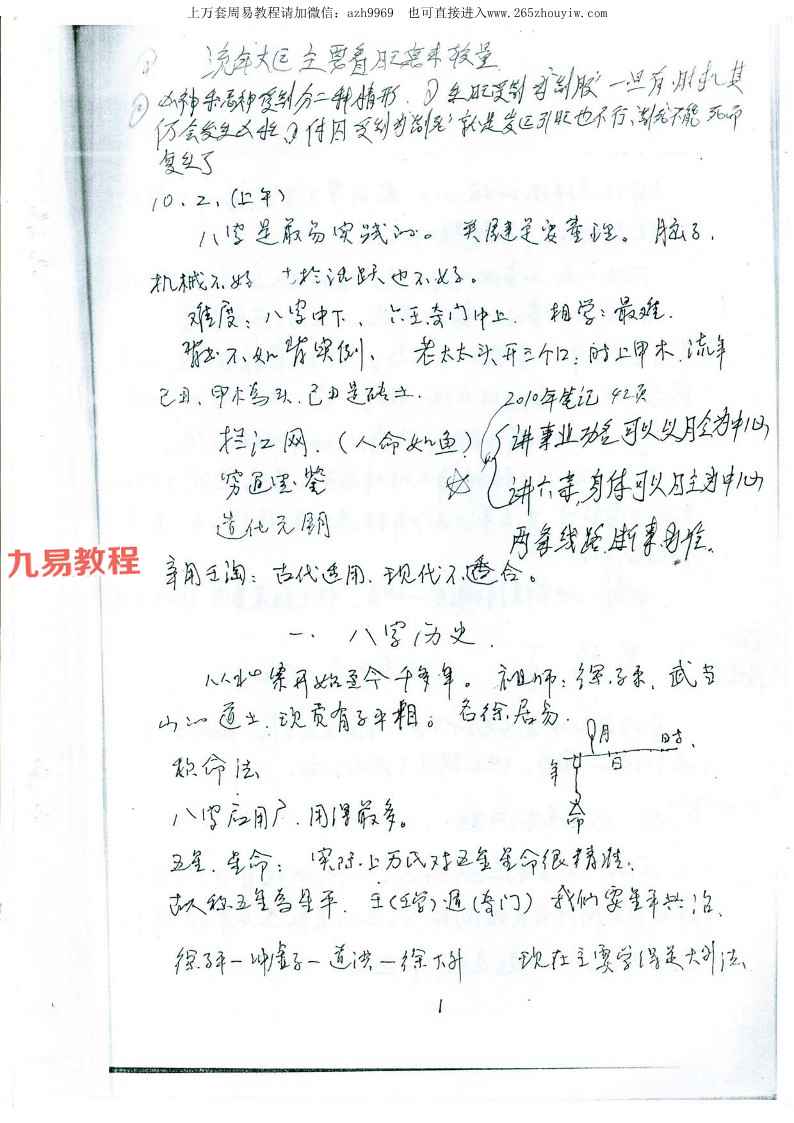 上万套周易教程请加微信：azh9969 也可直接进入www.265zhouyiw.com
流年大运主要看旺衰来较量
凶神 受制分二种情形. ① 受制为制服 一旦有 其
仍会发生凶 ② 受制为制死 就是岁运引旺也不行、制死不能死而
复生了
10. 2. (上午)
八字是最易实践的。关键是要量理。脑子,
机械不好 太于活跃也不好。
难度: 八字中下、六壬奇门中上. 相学: 最难.
背书不如背实例、老太太头开三个口: 时上甲木. 流年
己丑、甲木为头. 己丑是 土.
2010年笔记 42页
拦江网. (人命如鱼)
讲事业功名可以以月令为中心
穷通宝鉴
讲六亲,身体可以日主为中心
造化元钥
两条线路,断事 .
九易教程
辛用壬淘: 古代适用. 现代不适合。
一. 八字历史.
从 开始至今千多年。祖师: 徐子平. 武当
山的道士. 现 有子平相。名徐居易.
月 时
年 日
命
称命法
八字应用广. 用得最多。
五星. 星命: 实际上万氏对五星星命很精准.
故人称五星为星平. (壬学) 遁(奇门) 我们要星平共治.
徐子平一冲虚子一道洪一徐大升 现在主要学得是大升法
1